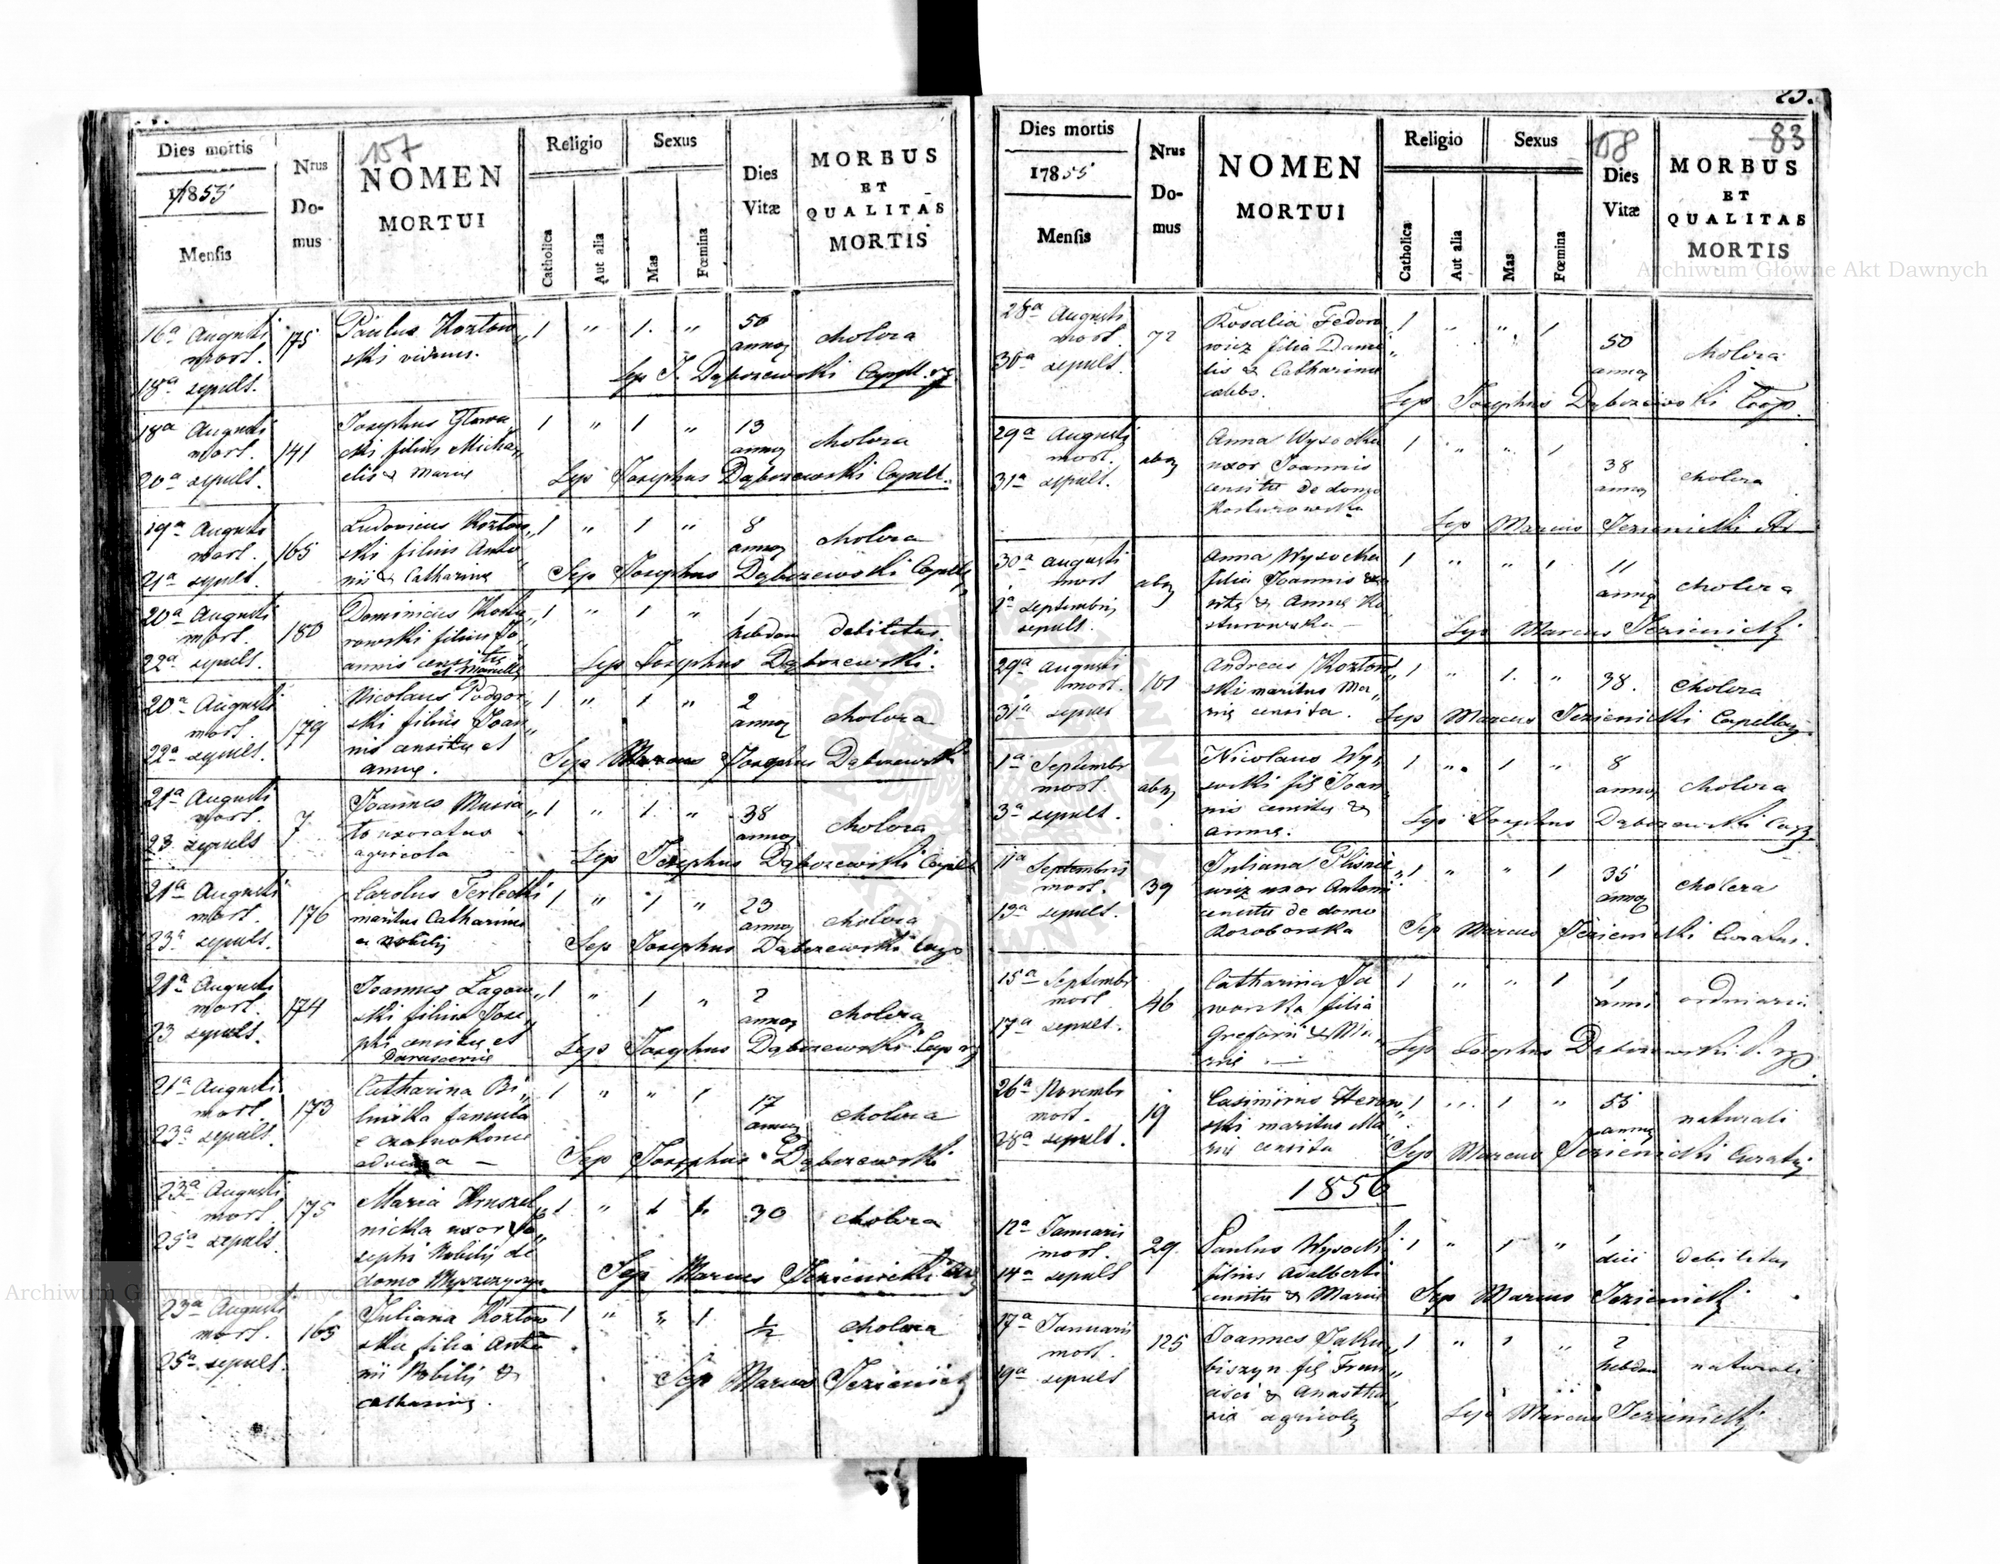 157
Dies mortis
17
1855
Mensis
Nrus
Do-
mus
NOMEN
MORTUI
Religio
Catholica
Aut alia
Sexus
Mas
Fœmina
Dies
Vitæ
MORBUS
ET
QUALITAS
MORTIS
16a Augusti
mort.
18a sepult.
175
Paulus Kozłow„
ski viduus.
1 „ 1. „
50
annor
cholera
Sep J. Dąbrzewski Capell.
18a Augusti
mort.
20a sepult.
141
Josephus
filius Micha„
elis & Mariæ
1 „ 1 „
13
annor
cholera
Sep Josephus Dąbrzewski Capell.
19a Augusti
mort.
21a sepult.
165
Ludovicus Kozłow„
ski filius Anto„
nii & Catharinæ
1 „ 1 „
8
annor
cholera
Sep Josephus Dąbrzewski Capell
20a Augusti
mort.
22a sepult.
180
Dominicus Kostu„
rowski filius Jo„
annis censitæ
1 „ 1 „
1
hebdom
debilitas.
Sep Josephus Dąbrzewski.
20a Augusti
mort.
22a sepult.
179
Nicolaus Podgór„
ski filius Joan„
nis censitæ et
Annæ.
1 „ 1 „
2
annor
cholera
Sep Josephus Dąbrzewski
21a Augusti
mort.
23 sepult
7
Joannes Musia„
ło uxoratus
agricola
1 „ 1. „
38
annor
cholera
Sep Josephus Dąbrzewski Capell
21a Augusti
mort.
23a sepult.
176
Carolus Terlecki
maritus Catharinæ
1 „ 1 „
23
annor
cholera
Sep Josephus Dąbrzewski Cap
21a Augusti
mort.
23 sepult.
174
Joannes Łagow„
ski filius Jose„
phi censitæ et
1 „ 1 „
2
annor
cholera
Sep Josephus Dąbrzewski Cap
21a Augusti
mort.
23a sepult.
173
Catharina Bi„
lińska famula
1 „ „ 1
17
annor
cholera
Sep Josephus Dąbrzewski
23a Augusti
mort
25a sepult.
175
Maria Kruszel„
nicka uxor Jo„
sephi Nobilis de
domo
1 „
30
cholera
Sep Marcus Jezienicki
23a Augusti
mort.
25a sepult.
165
Juliana Kozłow„
ska filia Anto„
nii Nobilis &
Catharinæ.
1 „ „ 1
1/2
cholera
Sep Marcus Jezienicki
83
158
Dies mortis
1855
Mensis
Nrus
Do-
mus
NOMEN
MORTUI
Religio
Catholica
Aut alia
Sexus
Mas
Fœmina
Dies
Vitæ
MORBUS
ET
QUALITAS
MORTIS
28a Augusti
mort.
30a sepult.
72
Rosalia Fedoro„
wicz filia Dani„
lis & Catharinæ
cælebs.
1 „ „ 1
50
annor
cholera
Sep Josephus Dąbrzewski Coop.
29a Augusti
mort.
31a sepult.
Anna Wysocka
uxor Joannis
censitæ de domo
Kosturowska
1 „ „ 1
38
annor
cholera
Sep Marcus Jezienicki
30a Augusti
mort
1a Septembris
sepult.
Anna Wysocka
filia Joannis cen„
sitæ & Annæ Ko„
sturowska
1 „ „ 1
11
annor
cholera
Sep Marcus Jezienicki
29a Augusti
mort.
31a sepult
101
Andreas Kozłow„
ski maritus Ma„
riæ censita.
1 „ 1. „
38.
cholera
Sep Marcus Jezienicki Capellan
1a Septembr
mort.
3a sepult.
Nicolaus Wy„
socki fil Joan„
nis censitæ &
Annæ.
1 „ 1 „
8
annor
cholera
Sep Josephus Dąbrzewski
11a Septembris
mort.
13a sepult.
39
Juliana
wicz uxor Antonii
censitæ de domo
Koroborska
1 „ „ 1
35
annor
cholera
Sep Marcus Jezienicki Curatus.
15a Septembr
mort
17a sepult.
46
Catharina Ja„
worska filia
Gregorii & Ma„
riæ
1 „ „ 1
1
anni
ordinaria
Sep Josephus Dąbrzewski
26a Novembr
mort.
28a sepult.
19
Casimirus
ski maritus Ma„
riæ censita
1 „ 1 „
55
annor
naturali
Sep Marcus Jezienicki Curatus
1856
12a Januarii
mort.
14a sepult
29
Paulus Wysocki
filius Adalberti
censitæ & Mariæ
1 „ 1 „
1
diei
debilitas
Sep Marcus Jezienicki
17a Januarii
mort.
19a sepult
125
Joannes Jaku„
biszyn fil Fran„
cisci & Anasta„
siæ agricolæ
1 „ 1 „
2
hebdom
naturali
Sep Marcus Jezienicki
Archiwum Główne Akt Dawnych
Archiwum Główne Akt Dawnych